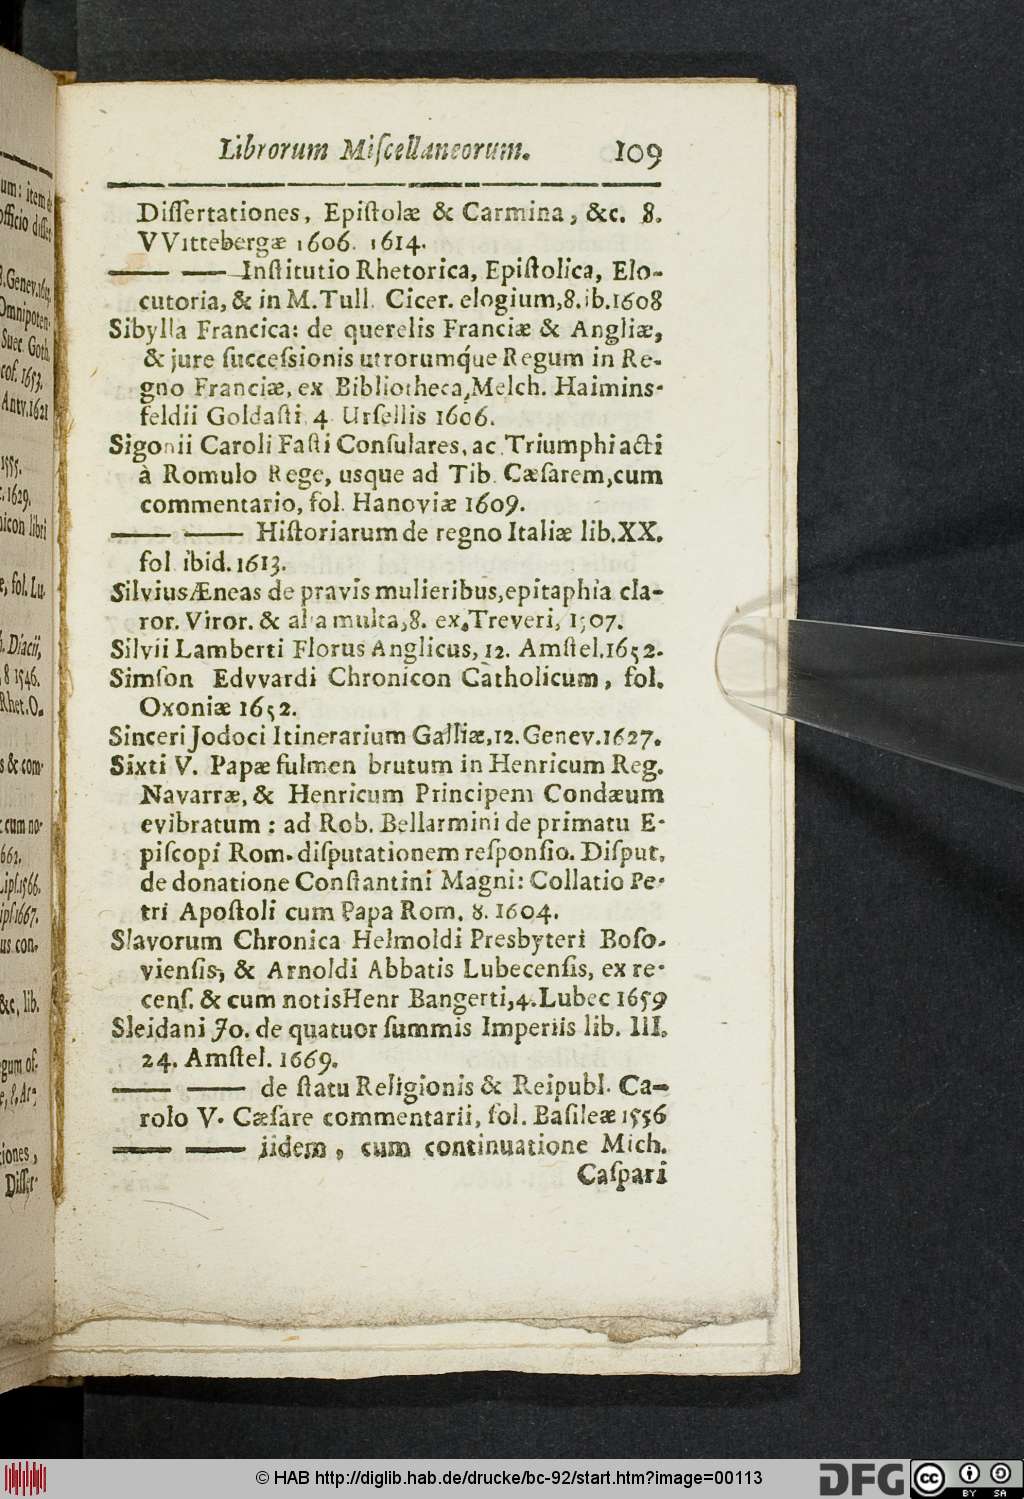 Librorum Miſcellaneorum. 109
Diſſertationes, Epiſtolæ & Carmina, &c. 8.
VVittebergæ 1606. 1614.
—— —— Inſtitutio Rhetorica, Epiſtolica, Elo-
cutoria, & in M. Tull. Cicer. elogium, 8. ib. 1608
Sibylla Francica: de querelis Franciæ & Angliæ,
& jure ſucceſsionis utrorumq́ue Regum in Re-
gno Franciæ, ex Bibliotheca, Melch. Haimins-
feldii Goldaſti, 4. Urſellis 1606.
Sigonii Caroli Faſti Conſulares, ac Triumphi acti
à Romulo Rege, usque ad Tib. Cæſarem, cum
commentario, fol. Hanoviæ 1609.
—— —— Hiſtoriarum de regno Italiæ lib. XX.
fol. ibid. 1613.
Silvius Æneas de pravis mulieribus, epitaphia cla-
ror. Viror. & alia multa, 8. ex. Treveri, 1507.
Silvii Lamberti Florus Anglicus, 12. Amſtel. 1652.
Simſon Edvvardi Chronicon Catholicum, fol.
Oxoniæ 1652.
Sinceri Jodoci Itinerarium Galliæ, 12. Genev. 1627.
Sixti V. Papæ fulmen brutum in Henricum Reg.
Navarræ, & Henricum Principem Condæum
evibratum: ad Rob. Bellarmini de primatu E-
piſcopi Rom. diſputationem reſponſio. Diſput.
de donatione Conſtantini Magni: Collatio Pe-
tri Apoſtoli cum Papa Rom. 8. 1604.
Slavorum Chronica Helmoldi Presbyteri Boſo-
vienſis, & Arnoldi Abbatis Lubecenſis, ex re-
cenſ. & cum notis Henr Bangerti, 4. Lubec 1659
Sleidani Jo. de quatuor ſummis Imperiis lib. III.
24. Amſtel. 1669.
—— —— de ſtatu Religionis & Reipubl. Ca-
rolo V. Cæſare commentarii, fol. Baſileæ 1556
—— —— iidem, cum continuatione Mich.
Caſpari
© HAB http://diglib.hab.de/drucke/bc-92/start.htm?image=00113
DFG
cc BY SA